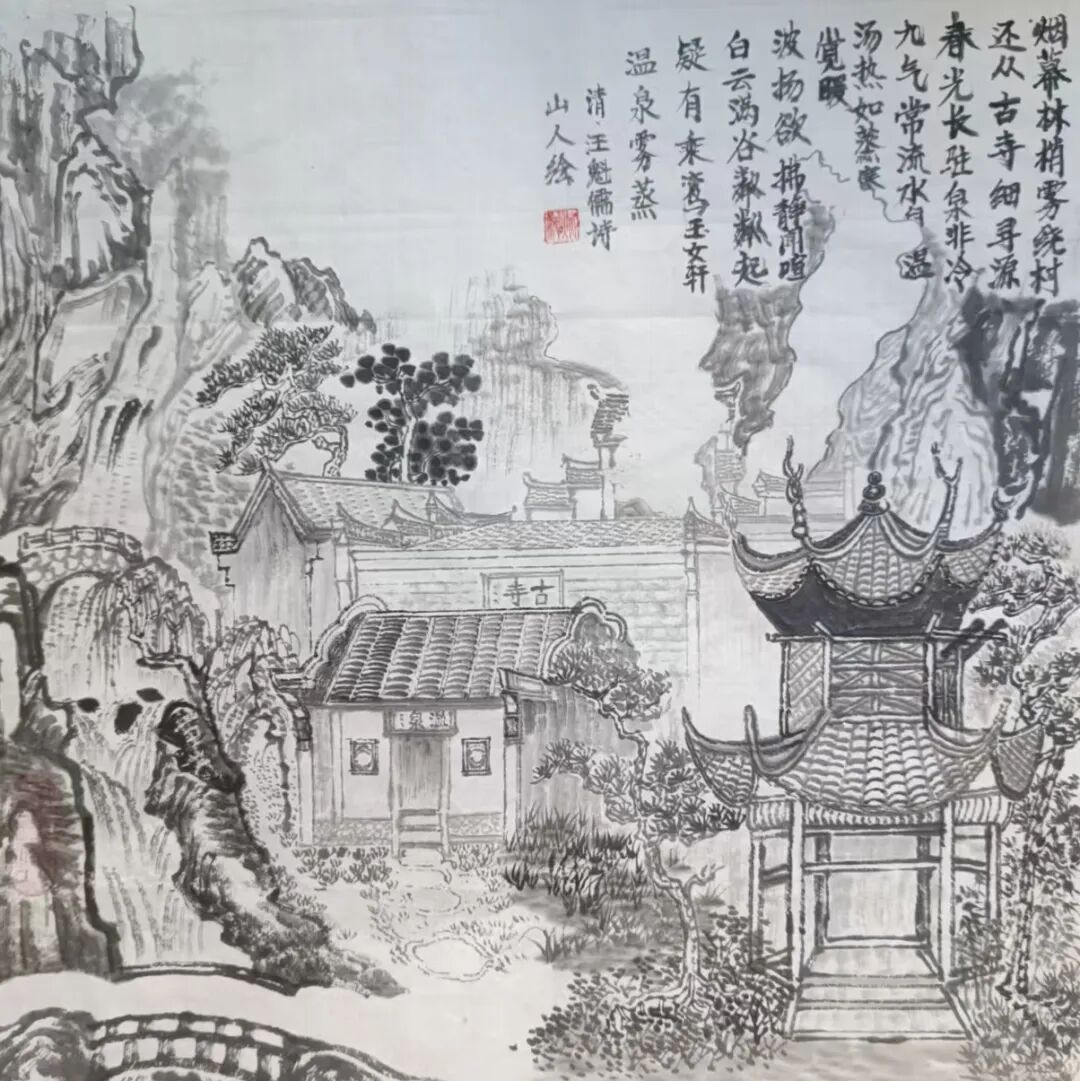 烟幕林梢雾绕村
还从古寺细寻源
春光长驻泉非冷
九气常流水自温
汤热如蒸
觉暖
波扬欲拂静闻喧
白云满谷起
疑有乘鸾轩
温泉雾蒸
清·汪魁儒诗
山人绘
古寺
温泉